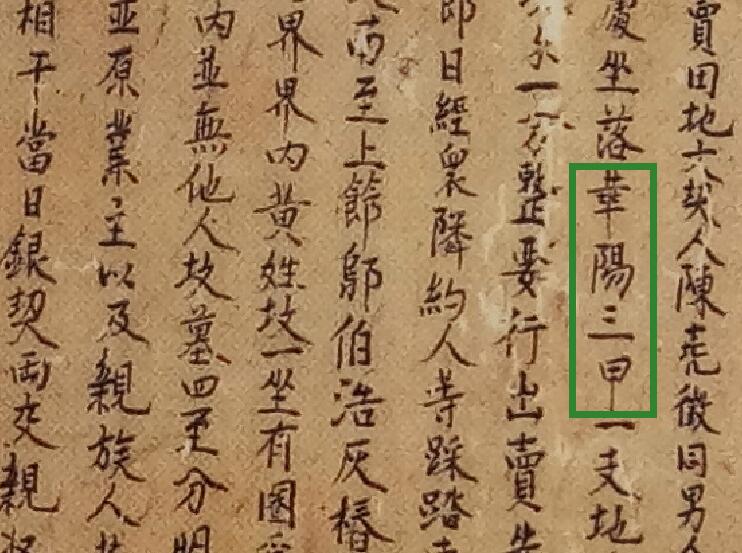 賣田地文契人陳堯徵同男
處坐落華陽三甲一支地
一家整要行出賣先
即日經衆隣約人等踩踏
西至上節鄔伯浩灰樁
界界内黄姓坟一坐有園
内並無他人坟墓四至分明
並原業主以及親族人等
相干當日銀契両交親